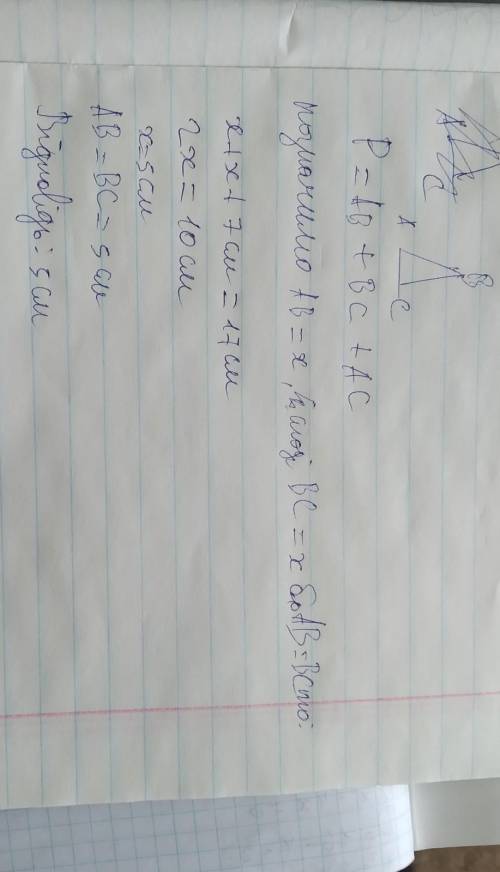 A C
A B C
P = AB + BC + AC
Позначимо AB = x, BC = x бо AB = BC то:
x + x + 7 см = 17 см
2x = 10 см
x = 5 см
AB = BC = 5 см
Відповідь: 5 см